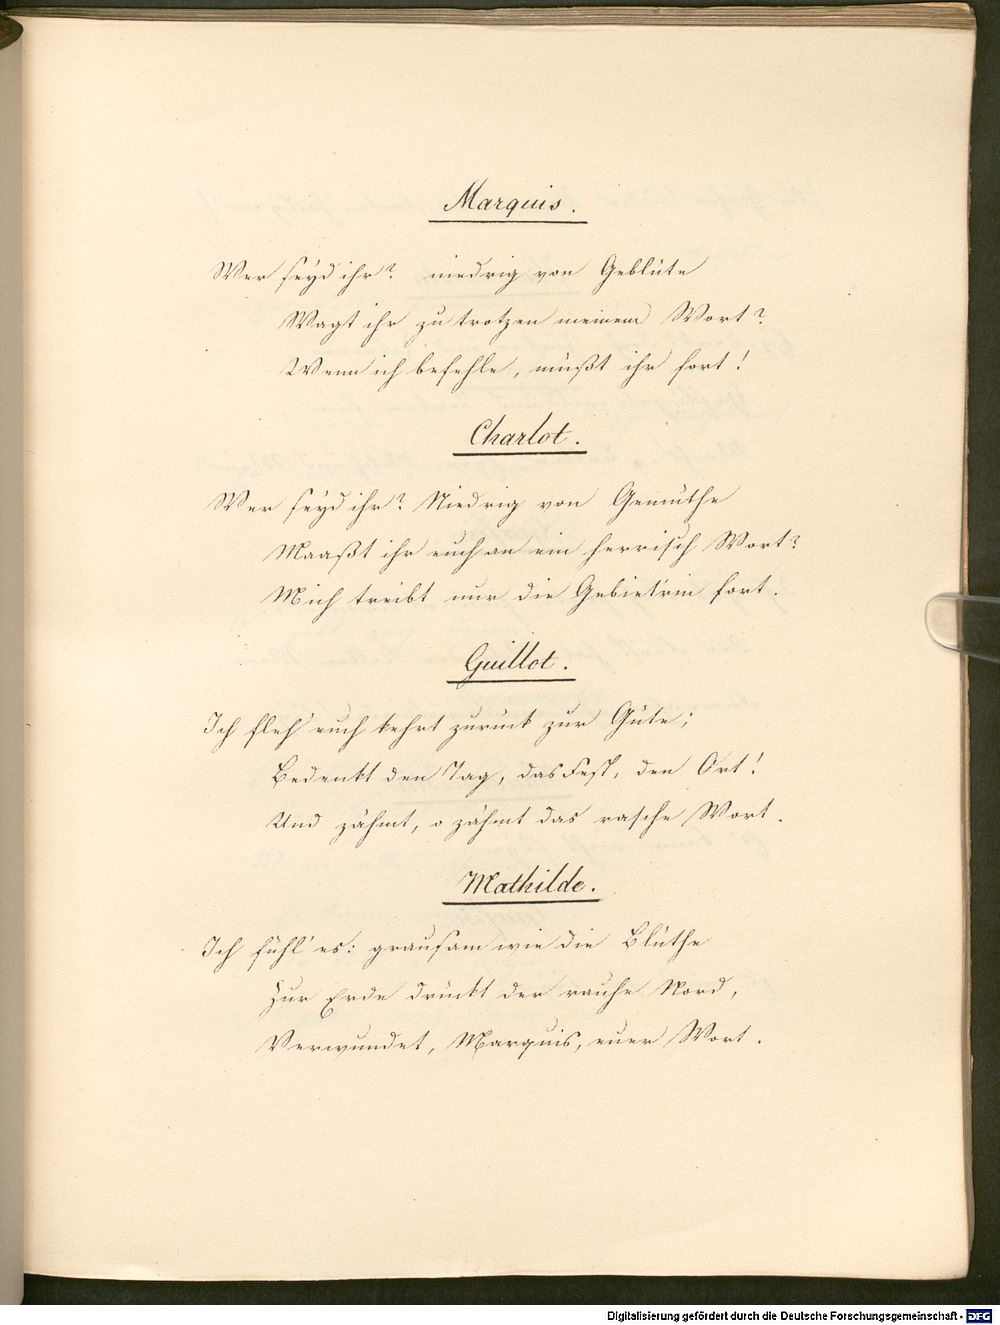 Marquis.
Wer seyd ihr? niedrig von Geblüte
Wagt ihr zu trotzen meinem Wort?
Wenn ich befehle, müßt ihr fort!
Charlot.
Wer seyd ihr? Niedrig von Gemüthe
Maaßt ihr euch an ein herrisch Wort?
Mich treibt nur die Gebiet'rin fort.
Guillot.
Ich fleh' euch kehrt zurück zur Güte;
Bedenkt den Tag, das Fest, den Ort!
Und zähmt, o zähmt das rasche Wort.
Mathilde.
Ich fühl' es: grausam wie die Blüthe
Zur Erde drückt der rauhe Nord,
Verwundet, Marquis, euer Wort.
Digitalisierung gefördert durch die Deutsche Forschungsgemeinschaft - DFG